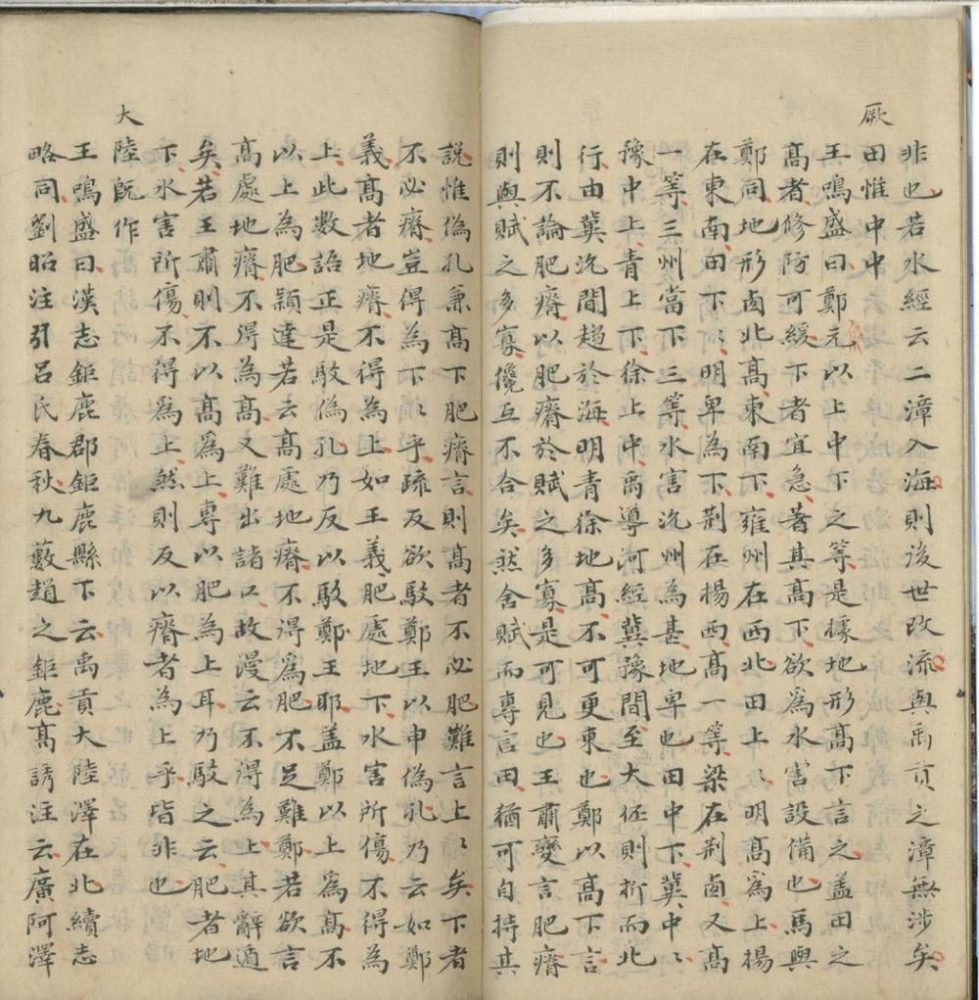 非也若水經云二漳入海則後世改流與禹貢之漳無涉矣
厥
田惟中中
王鳴盛曰鄭元以上中下之等是據地形高下言之盖田之
高者修防可緩下者宜急著其高下欲爲水害設備也馬與
鄭同地形卤北高東南下雍州在西北田上〻明高爲上揚
在東南田下〻明卑為下荆在揚西高一等梁在荆卤又高
一等三州當下三等水害沇州為甚地卑也田中下冀中〻
豫中上青上下徐上中禹導河經冀豫間至大伾則折而北
行由冀沇間趨於海明青徐地高不可更東也鄭以高下言
則不論肥瘠以肥瘠於賦之多寡是可見也王肅變言肥瘠
則與賦之多寡儳互不合矣然舍賦而專言田猶可自持其
說惟偽孔兼高下肥瘠言則高者不必肥難言上〻矣下者
不必瘠豈得為下〻乎疏反欲駁鄭王以申偽孔乃云如鄭
義高者地瘠不得為上如王義肥處地下水害所傷不得為
上此數語正是駁偽孔乃反以駁鄭王耶盖鄭以上爲高不
以上為肥穎達若云高處地瘠不得爲肥不足難鄭若欲言
高處地瘠不得為高又難出諸口故漫云不得為上其辭遁
矣若王肅則不以高爲上專以肥為上耳乃駁之云肥者地
下水害所傷不得爲上然則反以瘠者為上乎皆非也
大
陸旣作
王鳴盛曰漢志鉅鹿郡鉅鹿縣下云禹貢大陸澤在北續志
略同劉昭注引呂氏春秋九藪趙之鉅鹿高誘注云廣阿澤